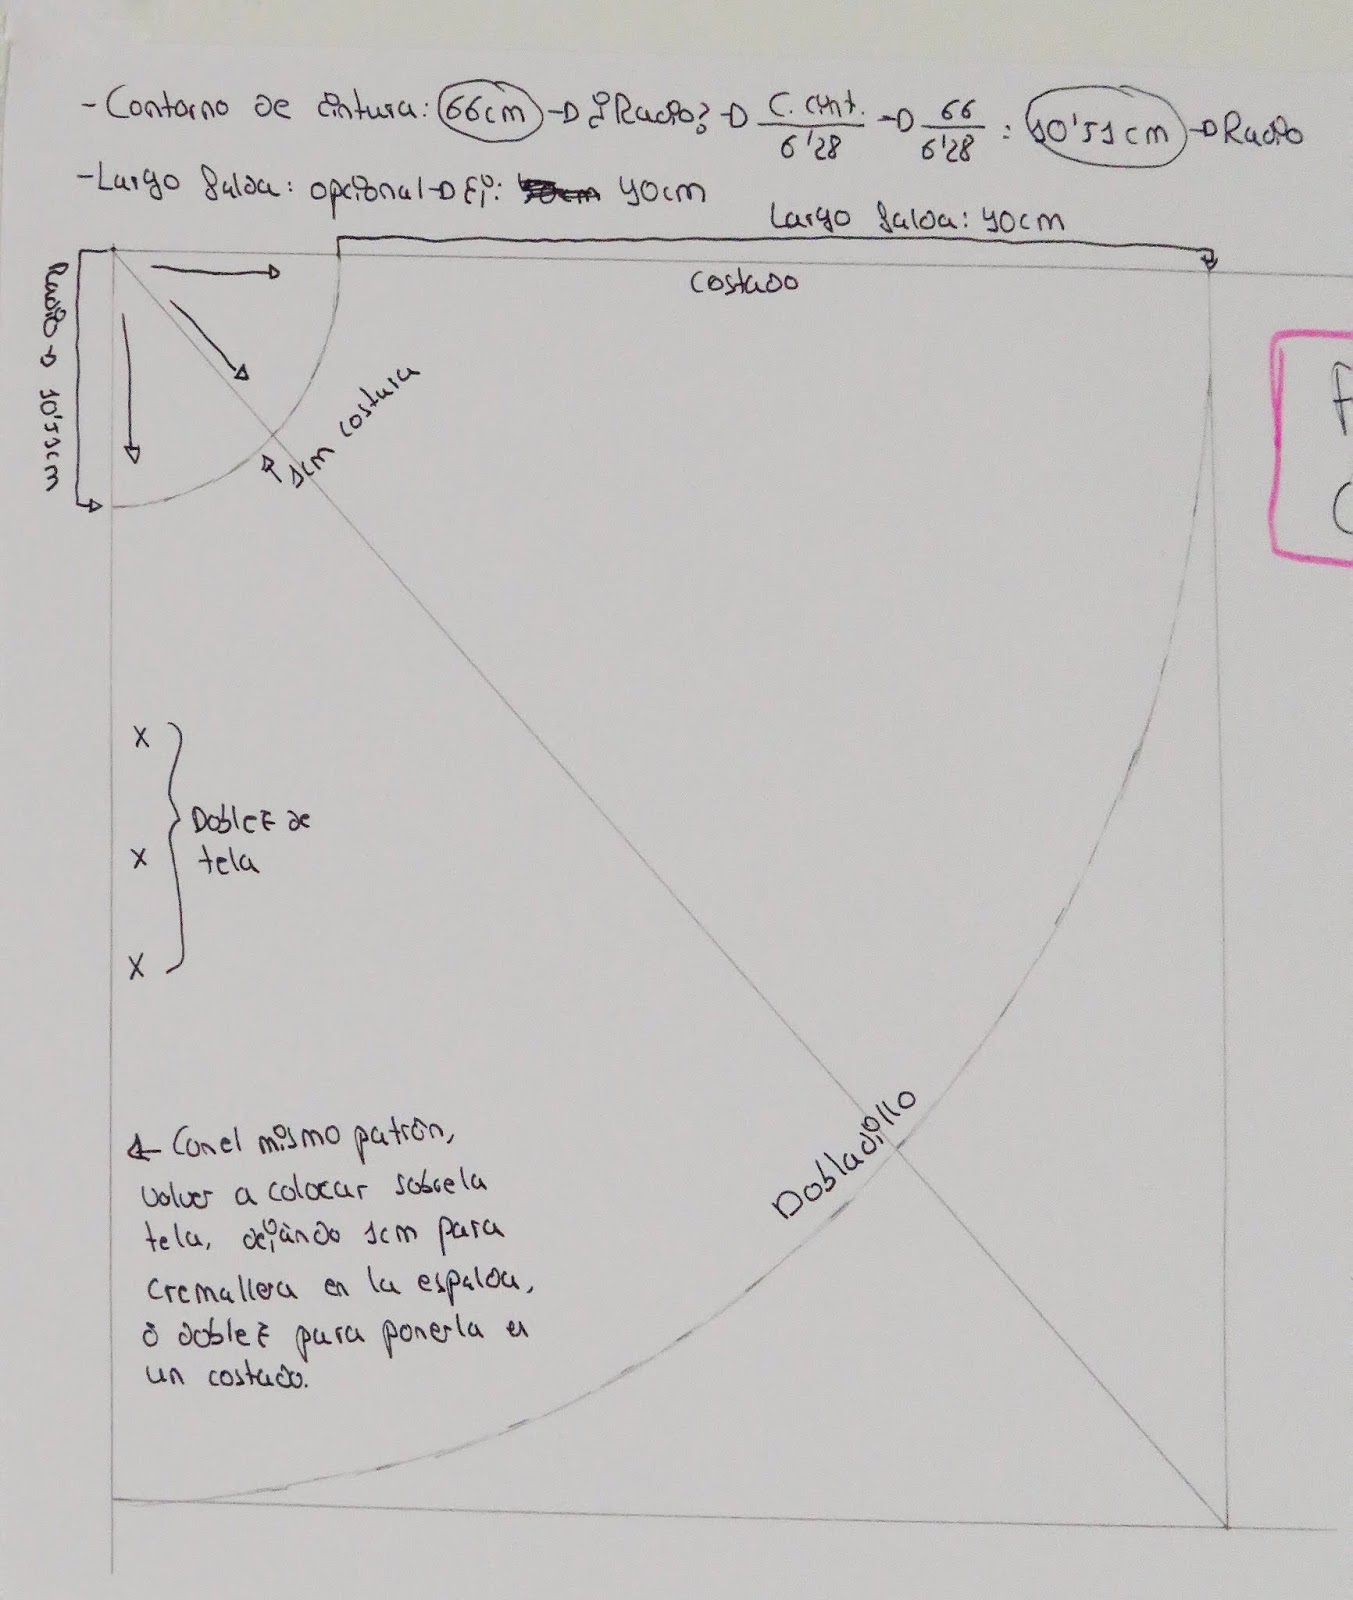 - Contorno de cintura: 66cm → ¿Radio? → C. cint. / 6'28 → 66 / 6'28 = 10'51cm → Radio
- Largo falda: opcional → Ej: 40cm
Largo falda: 40cm
Costado
Radio → 10'51cm
1cm costura
x
x
x
Doblez de
tela
Dobladillo
← Con el mismo patrón,
volver a colocar sobre la
tela, dejando 1cm para
cremallera en la espalda,
ó doblez para ponerla en
un costado.